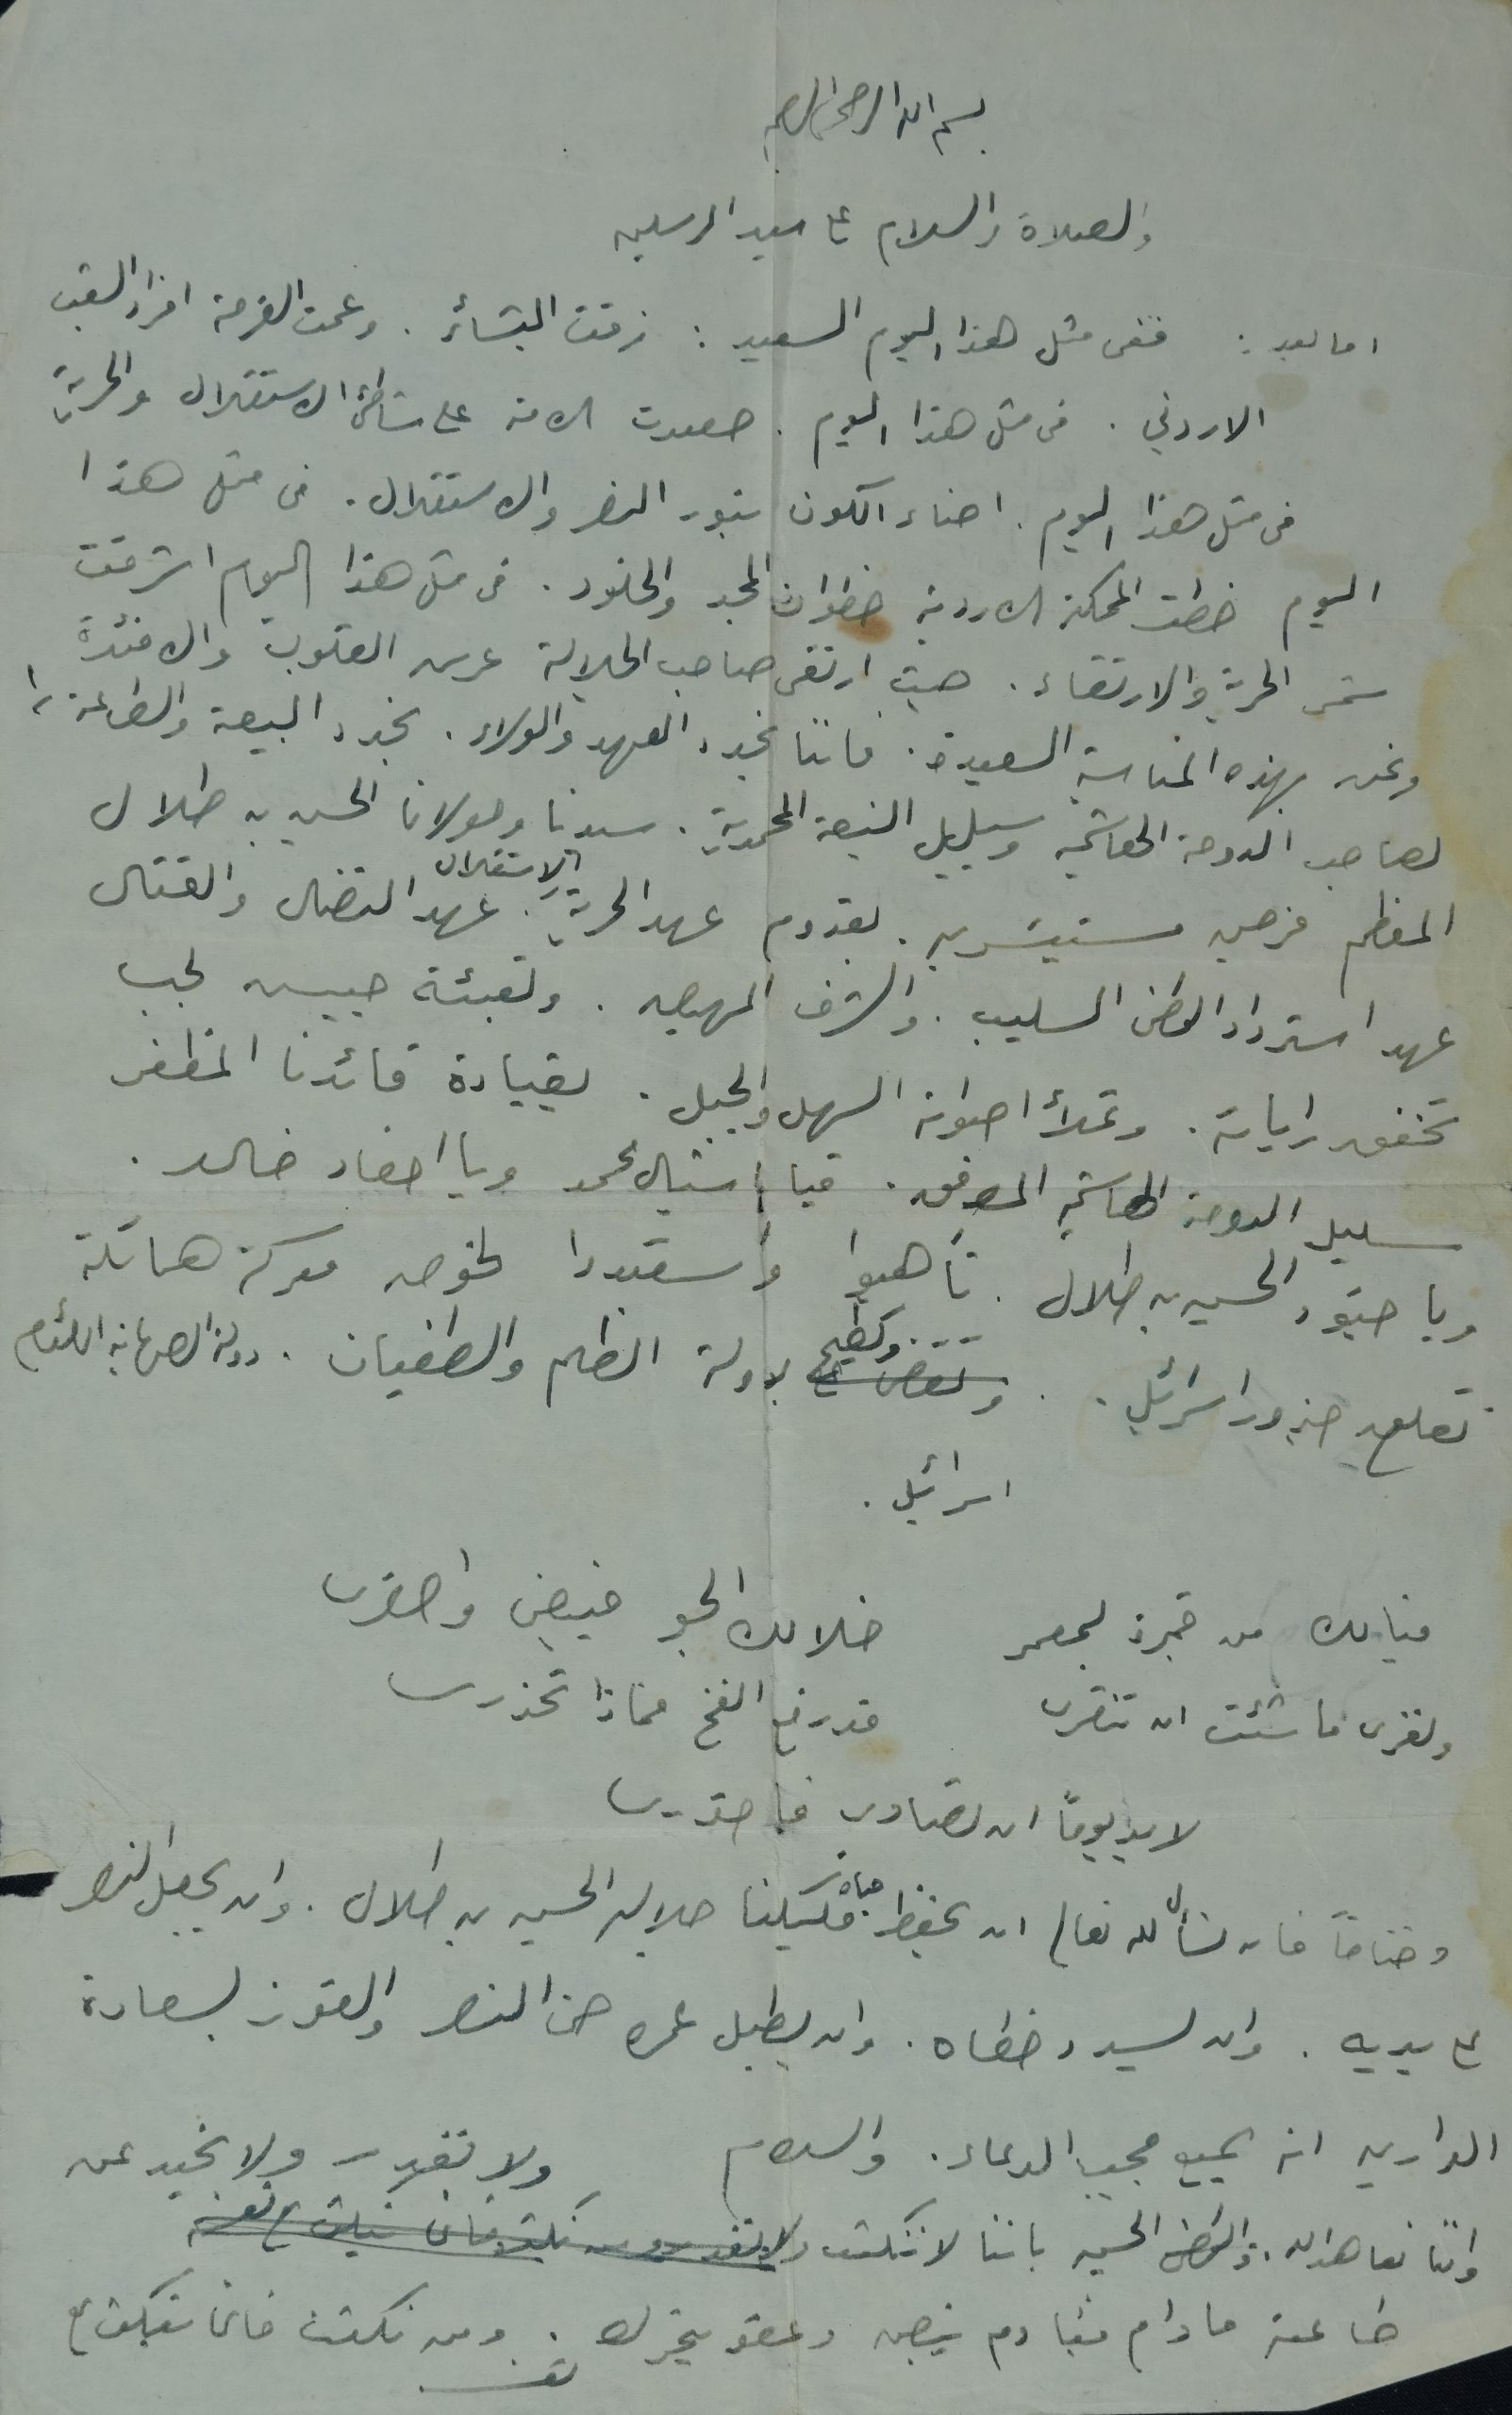 بسم الله الرحمن الرحيم
والصلاة والسلام على سيد المرسلين
اما بعد : ففى مثل هذا اليوم السعيد : زفت البشائر . وعمت الفرحة افراد الشعب
الاردني . فى مثل هذا اليوم . صعدت الامة على شاطئ الاستقلال والحرية
فى مثل هذا اليوم . اضاء الكون بنور النصر والاستقلال . فى مثل هذا
اليوم خطت المملكة الاردنية خطوات المجد والخلود . فى مثل هذا اليوم اشرقت
شمس الحرية والارتقاء . حيث ارتقى صاحب الجلالة عرس القلوب والافئدة
ونحن بهذه المناسبة السعيدة . فاننا نجدد العهد والولاء . نجدد البيعة والطاعة
لصاحب الدوحة الهاشمية وسليل النبعة المحمدية . سيدنا ومولانا الحسين بن طلال
المعظم فرحين مستبشرين . بقدوم عهد الحرية والاستقلال . عهد النضال والقتال
عهد استرداد الوطن السليب . والشرف المهيض . وتعبئة جيش لجب
تخفق راياته . وتملأ اصواته السهل والجبل . بقيادة قائدنا المظفر
سليل الدوحة الهاشمية الموفق . فيا اشبال محمد ويا احفاد خالد .
ويا جنود الحسين بن طلال . تأهبوا واستعدوا لخوض معركة هائلة
تقلع جذور اسرائيل . . وتقضى على وتطيح بدولة الظلم والطغيان . دولة الصهاينة اللئام
اسرائيل .
فيا لك من قبرة بمعمر خلا لك الجو فبيضي واصفرى
ونقرى ما شئت ان تنقرى قد رفع الفخ فماذا تحذرى
لا بد يوما ان تصادى فاصبرى
وختاما فانى نسأل الله تعالى ان يحفظ حياة مليكنا جلالة الحسين بن طلال . وان يجعل النصر
على يديه . وان يسدد خطاه . وان يطيل عمره حتى النصر والفوز بسعادة
الدارين انه سميع مجيب الدعاء . والسلام ولا نغدر ولا نحيد عن
واننا نعاهد الله . والوطن الحسين باننا لا ننكث ولا نغدر ومن نكث فانما ينكث على نفسه
طاعته ما دام فينا دم ينبض وعضو يتحرك . ومن نكث فانما ينكث على
نفسه